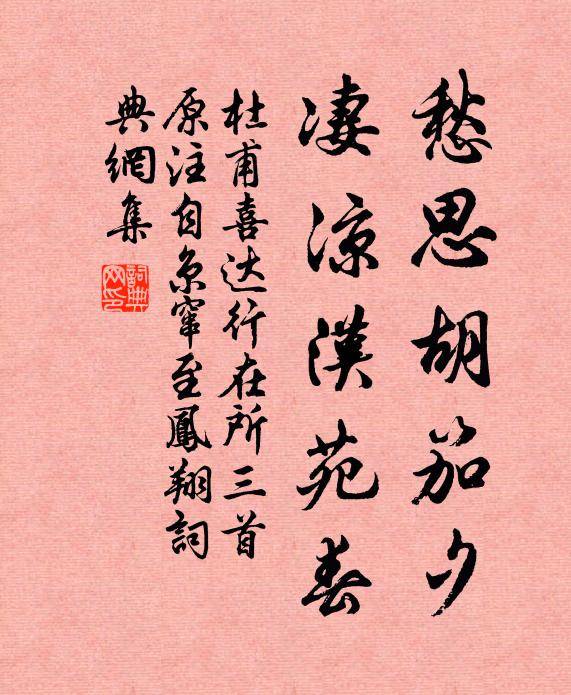 愁思胡笳夕
凄涼漢苑春
杜甫喜达行在所三首
原注自京窜至鳳翔詞
典網集
詞典
网印